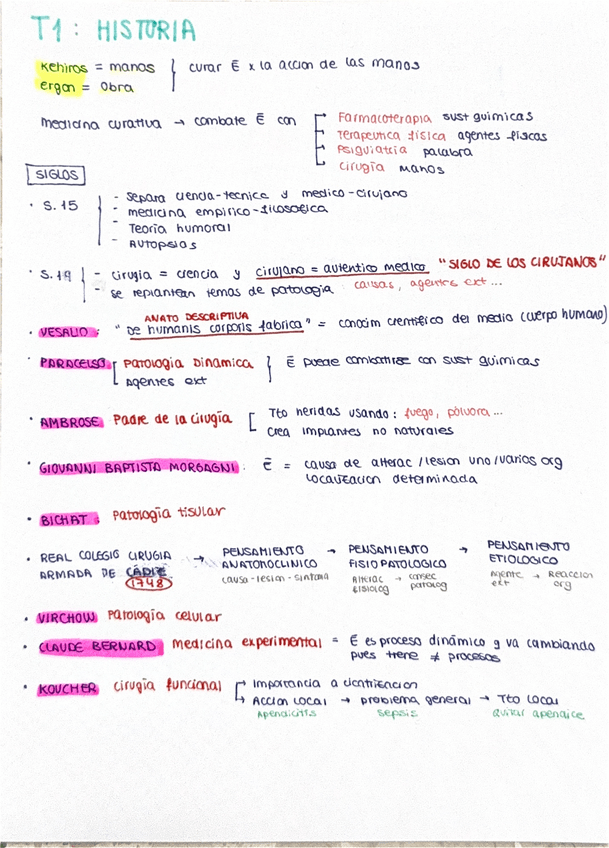 T1: HISTORIA
Kehiros = manos } curar Ē x la accion de las manos
ergon = obra
medicina curativa → combate Ē con
Farmacoterapia sust quimicas
Terapeutica física agentes físicas
Psiquiatria palabra
Cirugía manos
SIGLOS
· S. 15
- Separa ciencia-tecnica y medico-cirujano
- medicina empirico-filosofica
- Teoría humoral
- Autopsias
· S. 19
- cirugia = ciencia y cirujano = autentico medico "SIGLO DE LOS CIRUJANOS"
- se replantean temas de patología: causas, agentes ext...
ANATO DESCRIPTIVA
· VESALIO: "De humanis corporis fabrica" = conocim cientifico del medio (cuerpo humano)
· PARACELSO [ Patologia Dinamica } Ē puede combatirse con sust quimicas
Agentes ext
· AMBROSE Padre de la cirugía [ Tto heridas usando: fuego, pólvora...
Crea implantes no naturales
· GIOVANNI BAPTISTA MORGAGNI: Ē = causa de alterac/lesion uno/varios org
Localización determinada
· BICHAT: Patología tisular
· REAL COLEGIO CIRUGIA ARMADA DE CÁDIZ 1748 → PENSAMIENTO ANATOMOCLINICO → PENSAMIENTO FISIOPATOLOGICO → PENSAMIENTO ETIOLOGICO
causa-lesion-sintoma
Alterac fisiolog → consec patolog
Agente ext → Reaccion org
· VIRCHOW Patología celular
· CLAUDE BERNARD Medicina experimental = Ē es proceso dinámico y va cambiando
pues tiene ≠ procesos
· KOUCHER cirugía funcional
→ Importancia a cicatrización
→ Accion local → problema general → Tto local
Apendicitis sepsis Quitar apendice